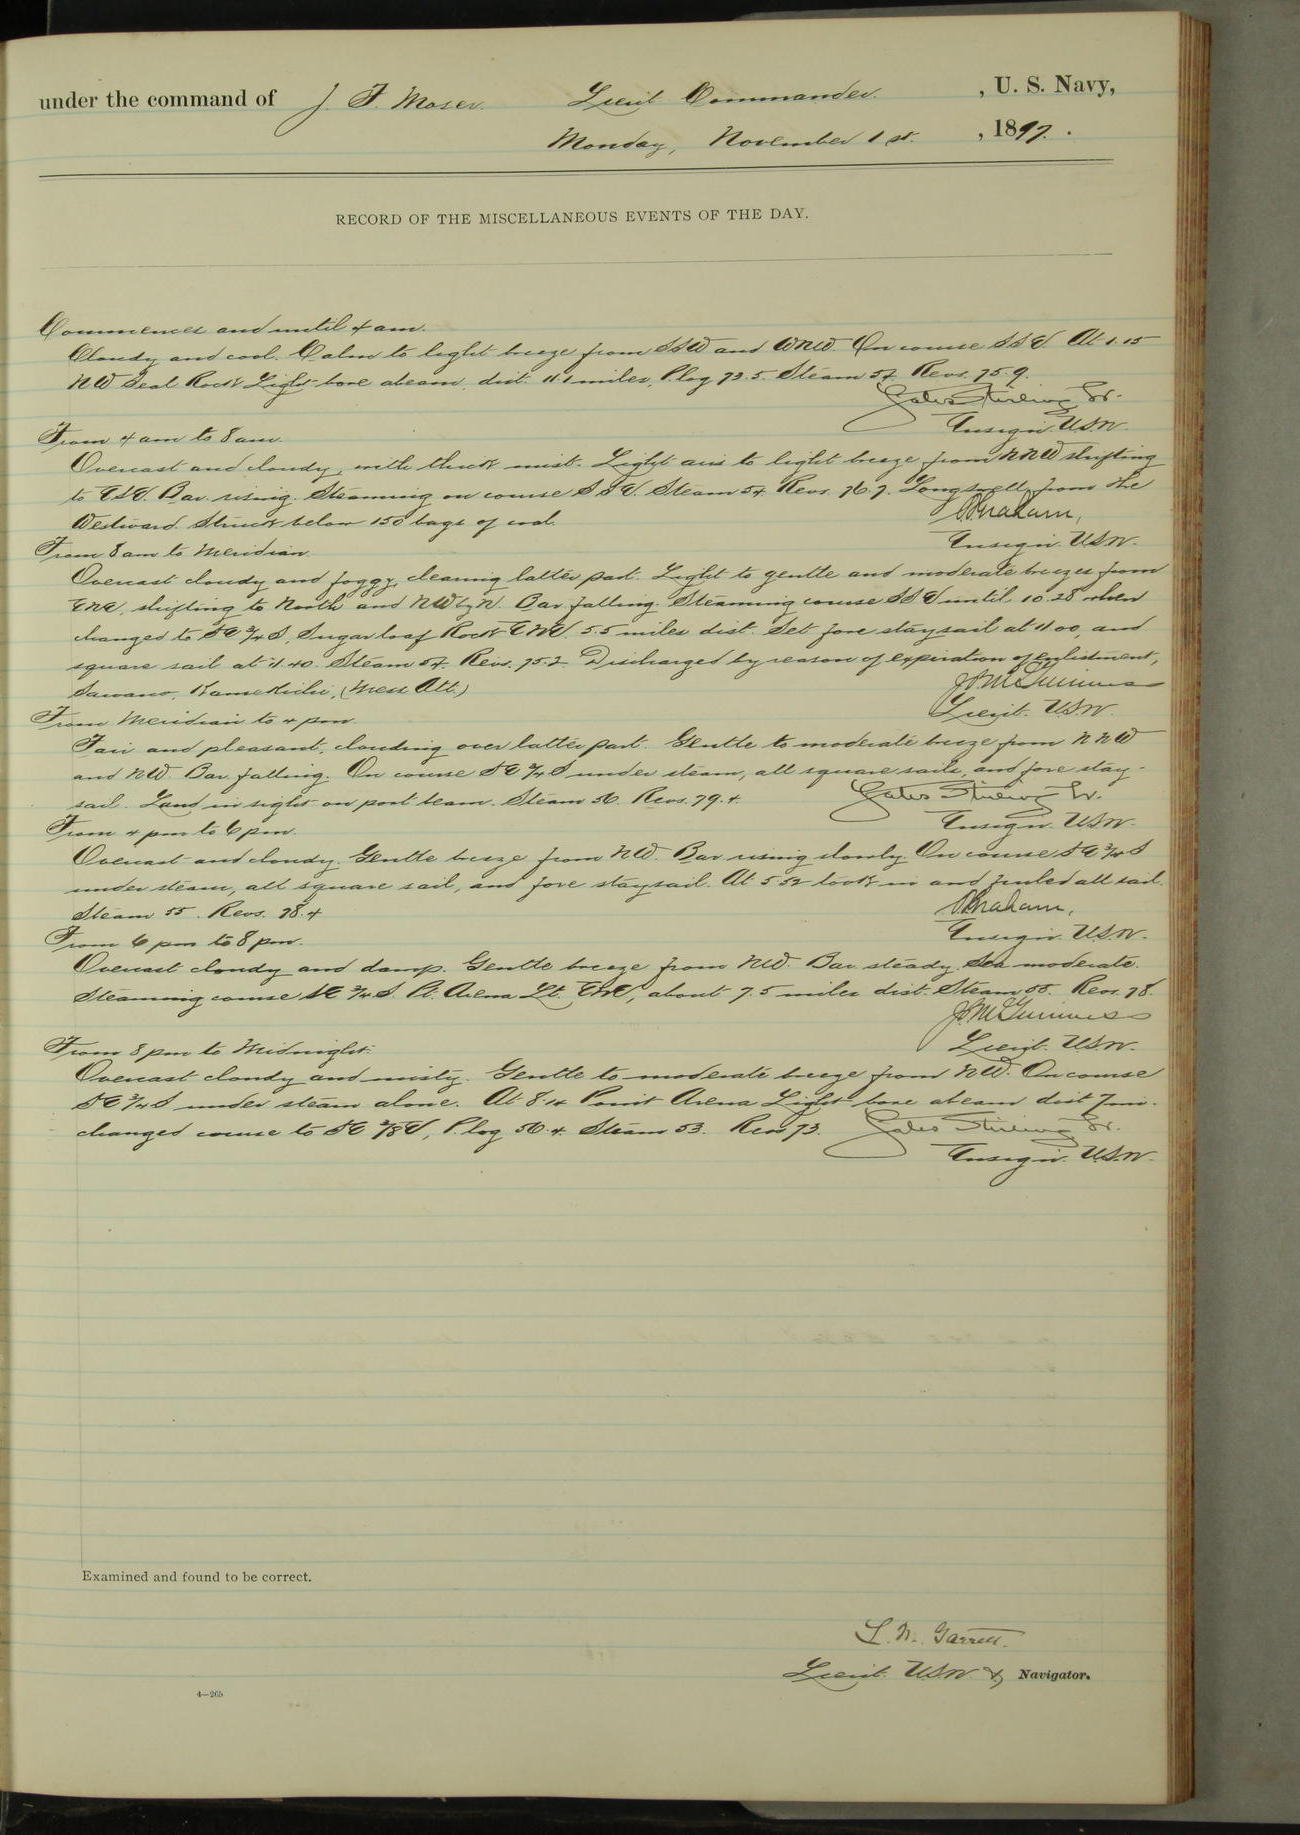 under the command of J. F. Moser Lieut Commander. , U. S. Navy,
Monday, November 1st. , 1897.
RECORD OF THE MISCELLANEOUS EVENTS OF THE DAY.
Commences and until 4 am.
Cloudy and cool. Calm to light breeze from SSW and WNW. On course SSE. At 1.15
NW Seal Rock Light bore abeam, dist. 11.1 miles, P. log 73.5. Steam 54. Revs. 75.9.
Yates Stirling Jr.
Ensign. USN.
From 4 am to 8 am.
Overcast and cloudy, with thick mist. Light airs to light breeze from NNW shifting
to ESE. Bar. rising. Steaming on course SSE. Steam 54. Revs. 76.7. Long swell from the
Westward. Struck below 150 bags of coal.
Graham,
Ensign. USN.
From 8 am to Meridian.
Overcast cloudy and foggy, clearing latter part. Light to gentle and moderate breezes from
ENE, shifting to North and NW by N. Bar. falling. Steaming course SSE until 10.28 when
changed to SE 3/4 S, Sugar loaf Rock ENE 5.5 miles dist. Set fore staysail at 11.00, and
square sail at 11.40. Steam 54. Revs. 75.2. Discharged by reason of expiration of enlistment,
Sawano, Kamekichi, (Mess Att.)
McGuinness
Lieut. USN.
From Meridian to 4 pm.
Fair and pleasant, clouding over latter part. Gentle to moderate breeze from NNW
and NW. Bar. falling. On course SE 3/4 S under steam, all square sails, and fore stay-
sail. Land in sight on port beam. Steam 56. Revs. 79.4.
Yates Stirling Jr.
Ensign. USN.
From 4 pm to 6 pm.
Overcast and cloudy. Gentle breeze from NW. Bar rising slowly. On course SE 3/4 S
under steam, all square sail, and fore staysail. At 5.52 took in and furled all sail.
Steam 55. Revs. 78.4
Graham,
Ensign. USN.
From 6 pm to 8 pm.
Overcast cloudy and damp. Gentle breeze from NW. Bar. steady. Sea moderate.
Steaming course SE 3/4 S. Pt. Arena Lt. ENE, about 7.5 miles dist. Steam 55. Revs. 78.
McGuinness
Lieut. USN.
From 8 pm to Midnight.
Overcast cloudy and misty. Gentle to moderate breeze from NW. On course
SE 3/4 S under steam alone. At 8.14 Point Arena Light bore abeam dist 7 mi.
changed course to SE 7/8 E, P. log 56.4. Steam 53. Revs 73.
Yates Stirling Jr.
Ensign. USN.
Examined and found to be correct.
L. N. Garrett.
Lieut. USN. & Navigator.
4—265